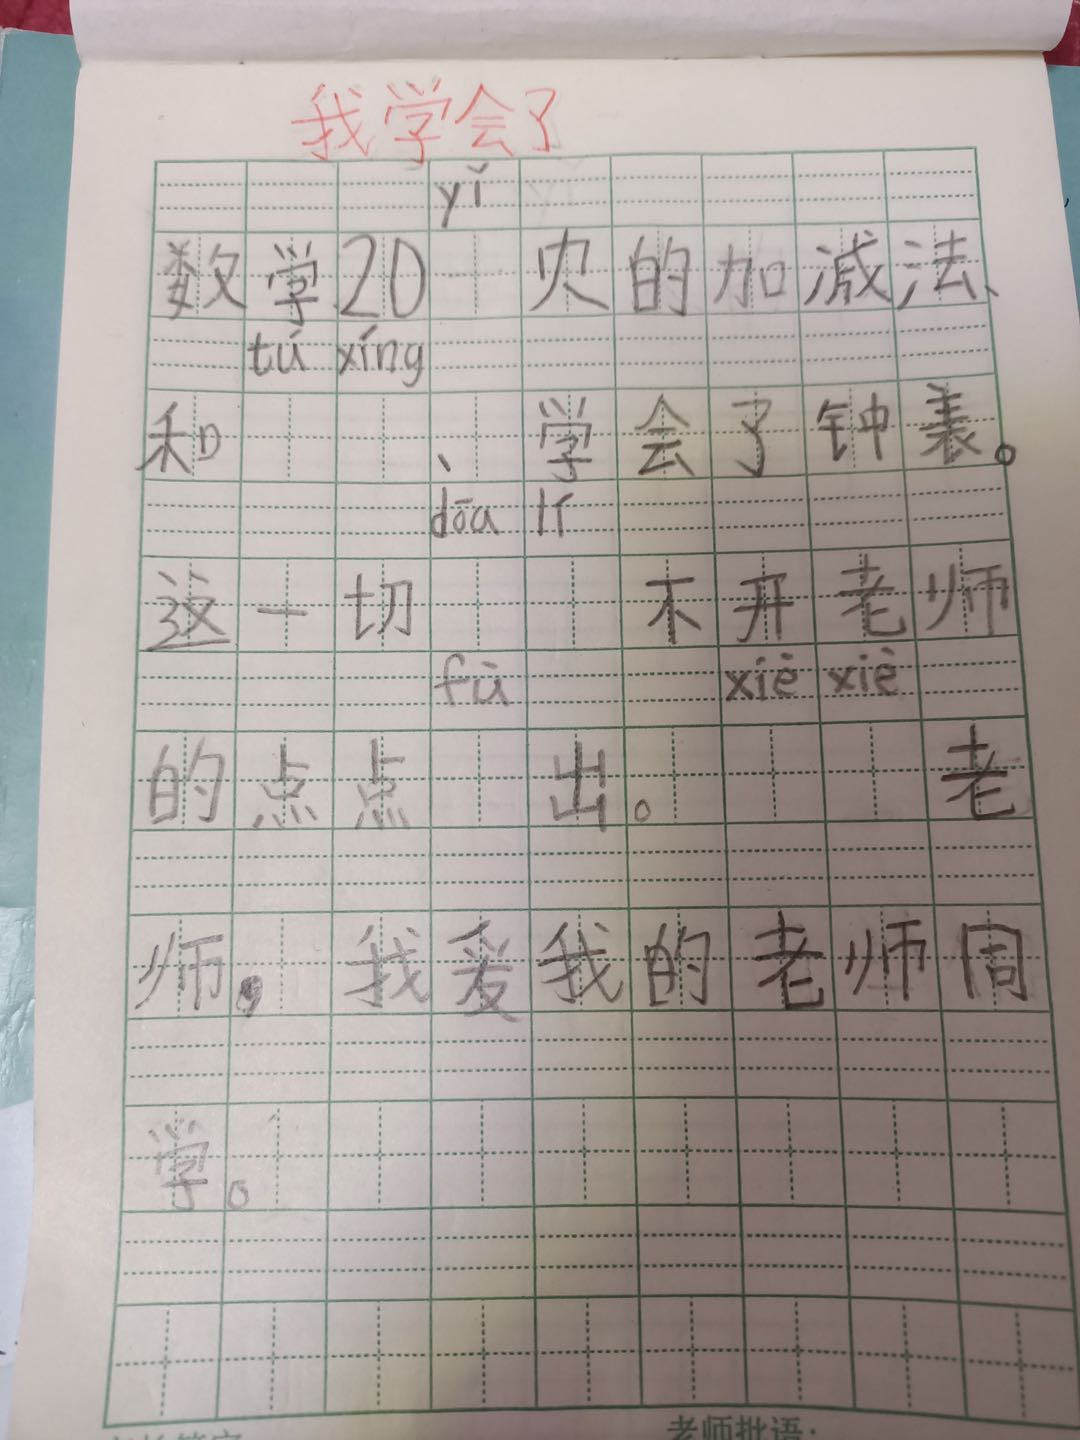 我学会了
yǐ
数学20内的加减法、
tú xíng
和、学会了钟表。
dōu lí
这一切不开老师
fù xiè xiè
的点点出。老
师,我爱我的老师周
学。
老师批语: